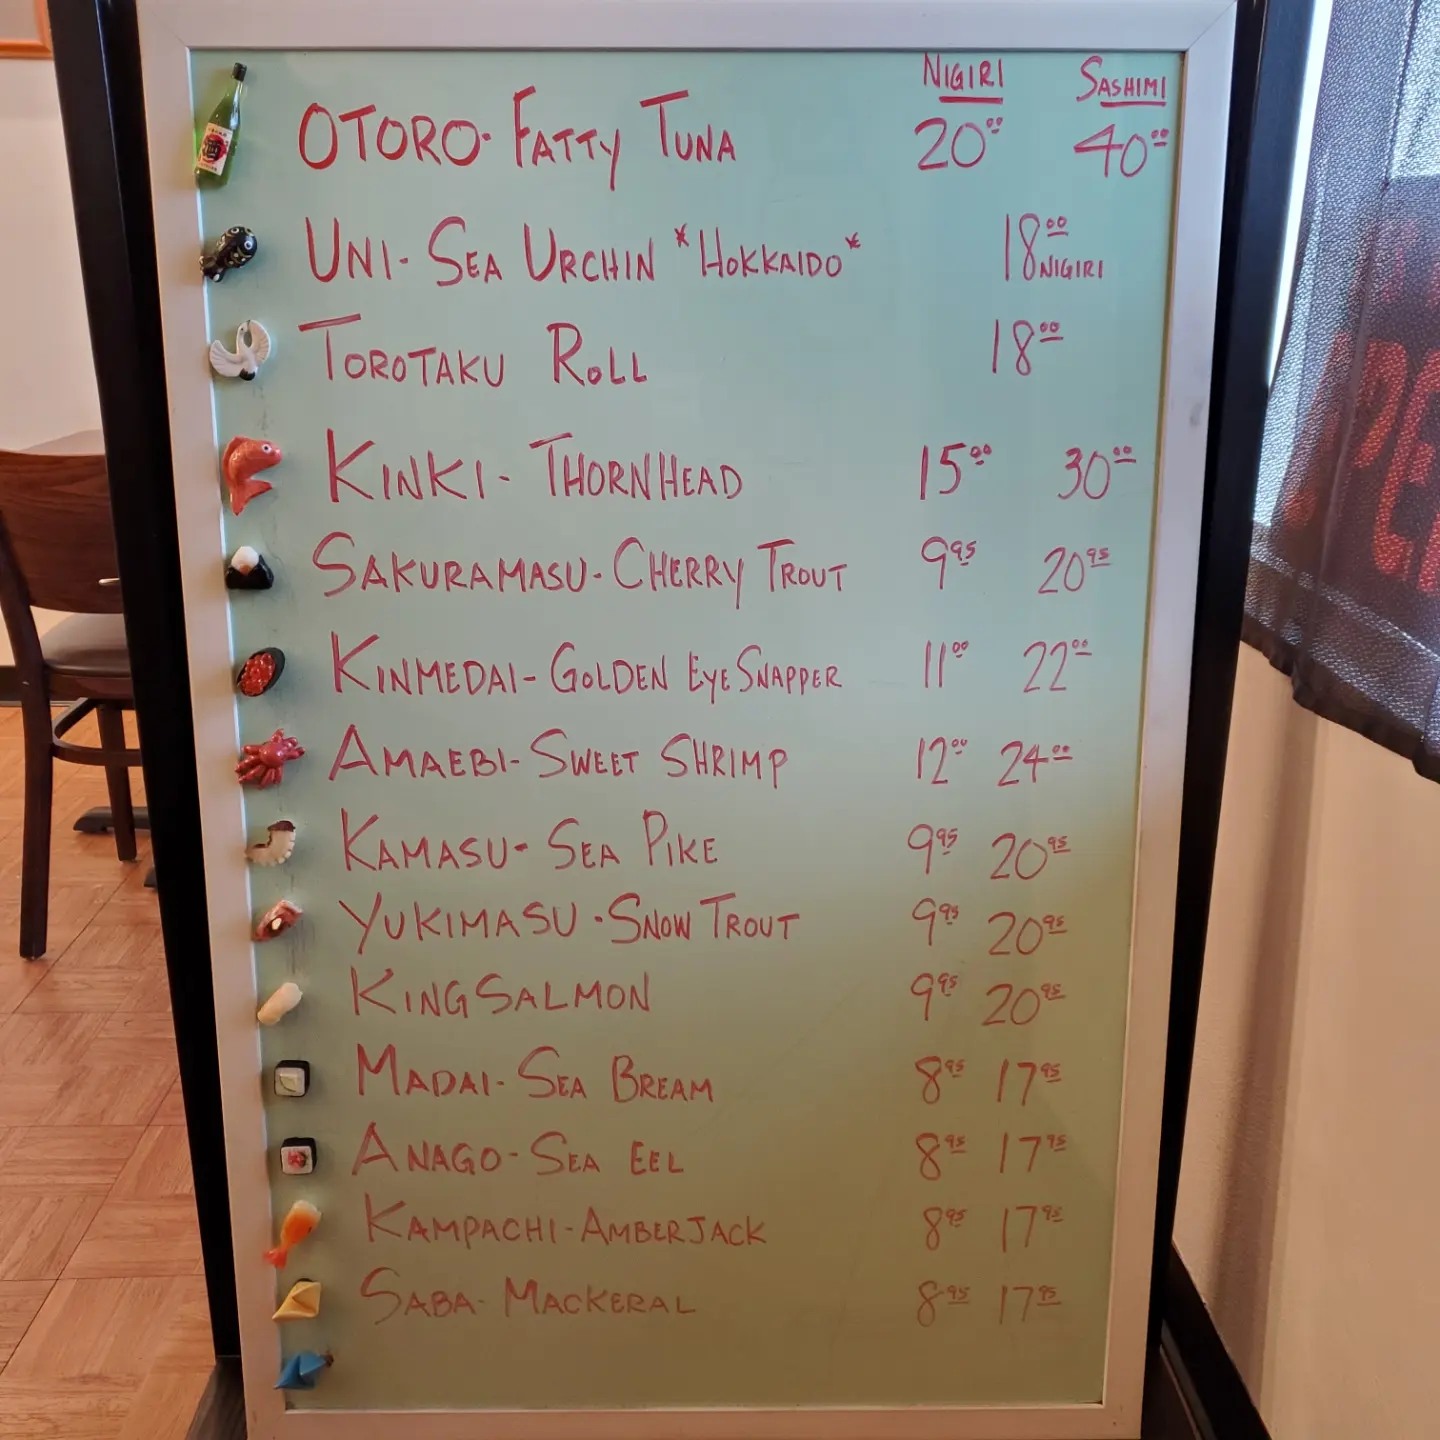 NIGIRI SASHIMI
OTORO- FATTY TUNA 20.00 40.00
UNI- SEA URCHIN *HOKKAIDO* 18.00 NIGIRI
TOROTAKU ROLL 18.00
KINKI- THORNHEAD 15.00 30.00
SAKURAMASU- CHERRY TROUT 9.95 20.95
KINMEDAI- GOLDEN EYE SNAPPER 11.00 22.00
AMAEBI- SWEET SHRIMP 12.00 24.00
KAMASU- SEA PIKE 9.95 20.95
YUKIMASU - SNOW TROUT 9.95 20.95
KING SALMON 9.95 20.95
MADAI- SEA BREAM 8.95 17.95
ANAGO- SEA EEL 8.95 17.95
KAMPACHI- AMBERJACK 8.95 17.95
SABA- MACKERAL 8.95 17.95